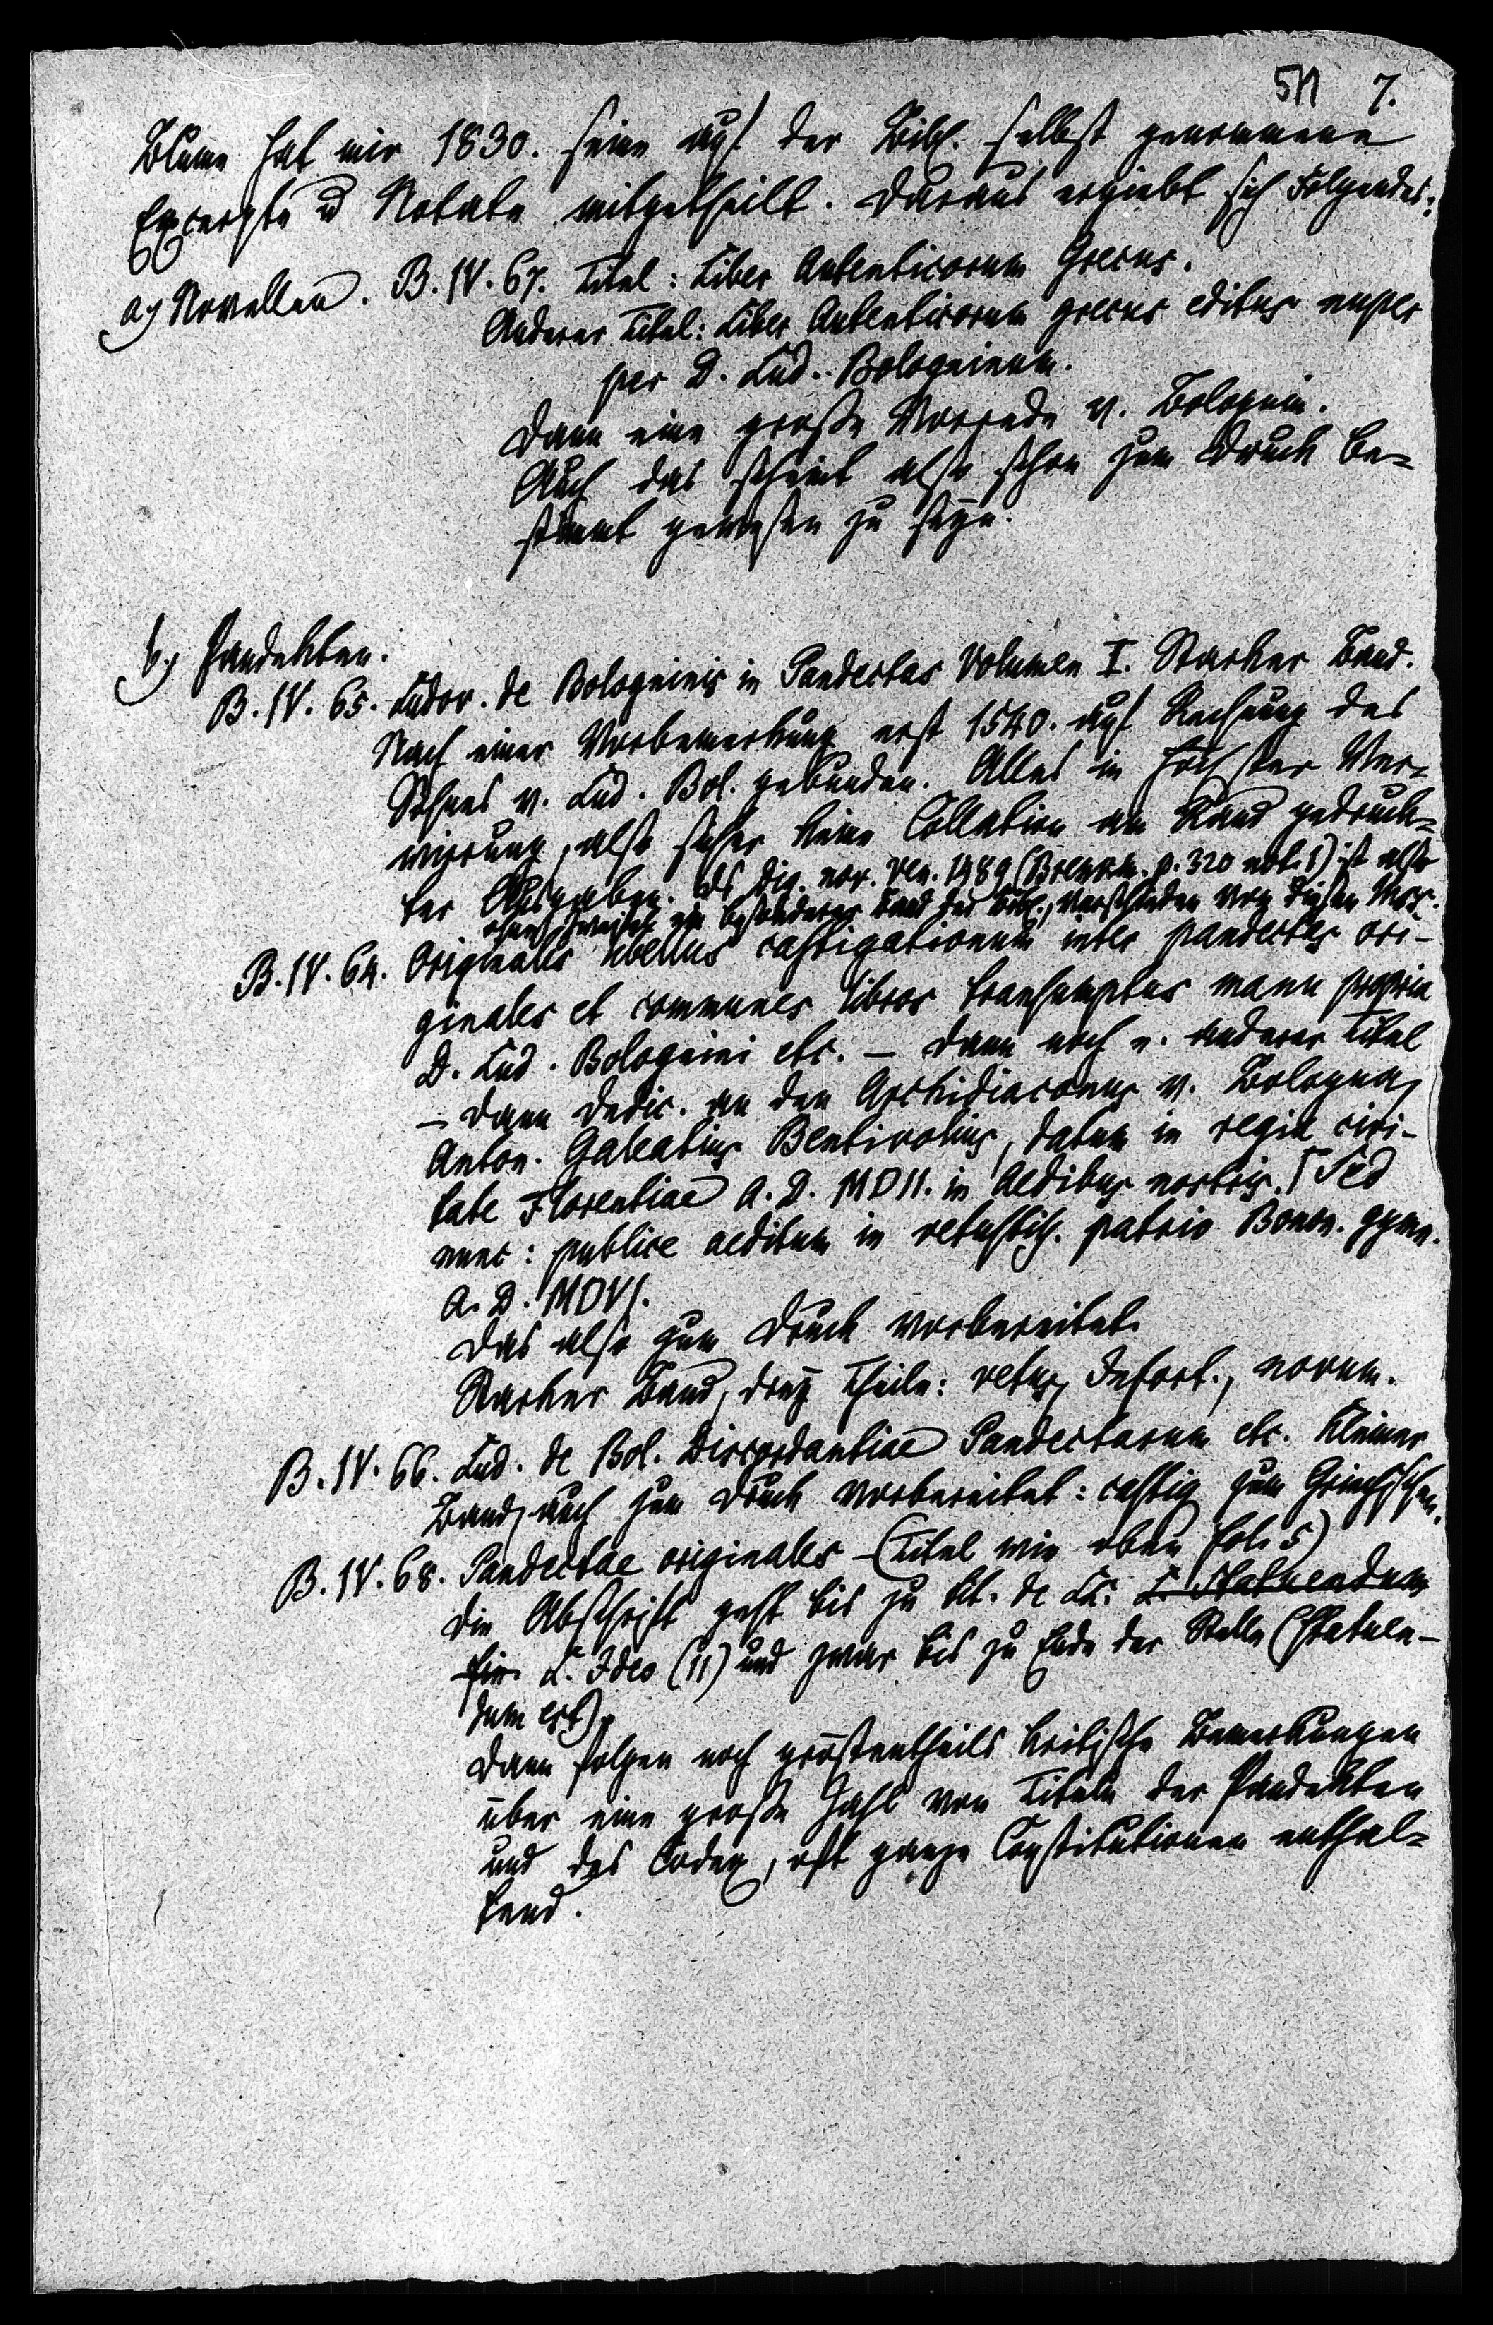 511 7.
Blume hat mir 1830. seine auf der Bibl. selbst genommene
Excerpte u Notate mitgetheilt. Daraus ergiebt sich Folgendes:
a) Novellen. B. IV. 67. Titel: Liber Autenticorum Grecus.
Anderer Titel: Liber Autenticorum grecus editus nuper
per D. Lud. Bologninum.
Dann eine große Vorrede v. Bolognin.
Auch das scheint also schon zum Druck be-
stimmt gewesen zu seyn.
b) Pandekten.
B. IV. 65. Ludov. de Bologninis in Pandectas Volumen I. Starker Band.
Nach einer Vorbemerkung erst 1540. auf Rechnung des
Sohnes v. Lud. Bol. gebunden. Alles in höchster Ver-
wirrung, also sicher keine Collation am Rand gedruck-
ter Ausgaben. Das Dig. nov. Ven. 1489 (Brenkm. p. 320 not. 1) ist also
ohne Zweifel ein besonderer Band der Bibl., verschieden von diesen Msc.
B. IV. 64. Originalis libellus castigationum inter pandectas ori-
ginales et communes libros transumptus manu propria
D. Lud. Bolognini etc. – dann noch e. anderer Titel
– dann Dedic. an den Archidiaconus v. Bologna,
Anton. Galeatius Bentivolius, datum in regia civi-
tate Florentiae A. D. MDII. in Aedibus nostris. Sed
nunc: publice aeditum in vetustiss. patrio Bonon. gymn.
A. D. MDVI.
Das also zum Druck vorbereitet.
Starker Band, drey Theile: vetus, Infort., novum.
B. IV. 66. Lud. de Bol. Discordantiae Pandectarum etc. Kleiner
Band, auch zum Druck vorbereitet: castig zum Griechischen.
B. IV. 68. Pandectae originales – (Titel wie oben fol. 5)
Die Abschrift geht bis zu tit. de LL. L. Statuendum
fin. L. Ideo (11) und zwar bis zu Ende der Stelle (statuen-
dum est).
Dann folgen noch größtentheils kritische Bemerkungen
über eine große Zahl von Titeln der Pandekten
und des Codex, oft ganze Constitutionen enthal-
tend.